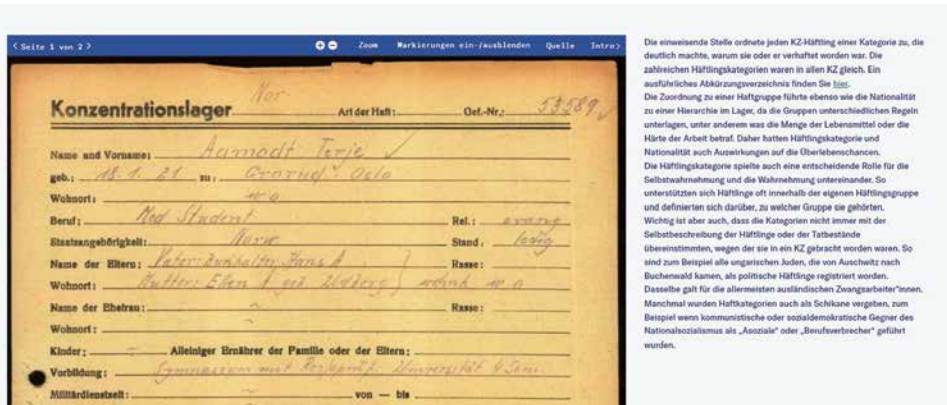 < Seite 1 von 2 > Zoom Markierungen ein-/ausblenden Quelle Intro >
Nor.
Konzentrationslager Art der Haft: Gef.-Nr.: 53589
Name und Vorname: Aamodt Terje
geb.: 18.1.21 zu: Grorud. Oslo
Wohnort: w o
Beruf: Med Student Rel.: evang
Staatsangehörigkeit: Norw. Stand: ledig
Name der Eltern: Vater: Buchhalter Hans A Rasse:
Wohnort: Mutter: Ellen A geb wohnh w o
Name der Ehefrau: Rasse:
Wohnort:
Kinder: Alleiniger Ernährer der Familie oder der Eltern:
Vorbildung: Gymnasium mit Universität 4 Sem.
Militärdienstzeit: von — bis
Die einweisende Stelle ordnete jeden KZ-Häftling einer Kategorie zu, die
deutlich machte, warum sie oder er verhaftet worden war. Die
zahlreichen Häftlingskategorien waren in allen KZ gleich. Ein
ausführliches Abkürzungsverzeichnis finden Sie hier.
Die Zuordnung zu einer Haftgruppe führte ebenso wie die Nationalität
zu einer Hierarchie im Lager, da die Gruppen unterschiedlichen Regeln
unterlagen, unter anderem was die Menge der Lebensmittel oder die
Härte der Arbeit betraf. Daher hatten Häftlingskategorie und
Nationalität auch Auswirkungen auf die Überlebenschancen.
Die Häftlingskategorie spielte auch eine entscheidende Rolle für die
Selbstwahrnehmung und die Wahrnehmung untereinander. So
unterstützten sich Häftlinge oft innerhalb der eigenen Häftlingsgruppe
und definierten sich darüber, zu welcher Gruppe sie gehörten.
Wichtig ist aber auch, dass die Kategorien nicht immer mit der
Selbstbeschreibung der Häftlinge oder der Tatbestände
übereinstimmten, wegen der sie in ein KZ gebracht worden waren. So
sind zum Beispiel alle ungarischen Juden, die von Auschwitz nach
Buchenwald kamen, als politische Häftlinge registriert worden.
Dasselbe galt für die allermeisten ausländischen Zwangsarbeiter*innen.
Manchmal wurden Haftkategorien auch als Schikane vergeben, zum
Beispiel wenn kommunistische oder sozialdemokratische Gegner des
Nationalsozialismus als „Asoziale" oder „Berufsverbrecher" geführt
wurden.